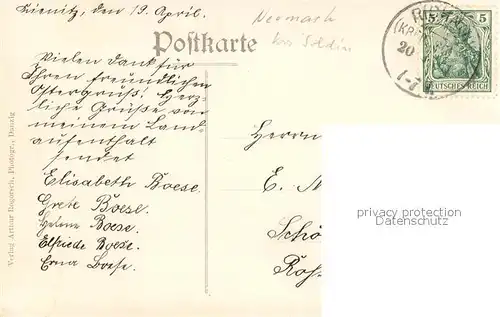 Kienitz, den 19. April.
Neumark
bei Soldin
Postkarte
Vielen Dank für
Ihren freundlichen
Ostergruß! Herz-
liche Grüße von
meinem Land-
aufenthalt
sendet
Elisabeth Boese.
Grete Boese.
Helene Boese.
Elfriede Boese.
Erna Boese.
Herrn
E.
Schö
Verlag Arthur Bogoreh, Photogr., Danzig
20
5
5
DEUTSCHES REICH
privacy protection
Datenschutz